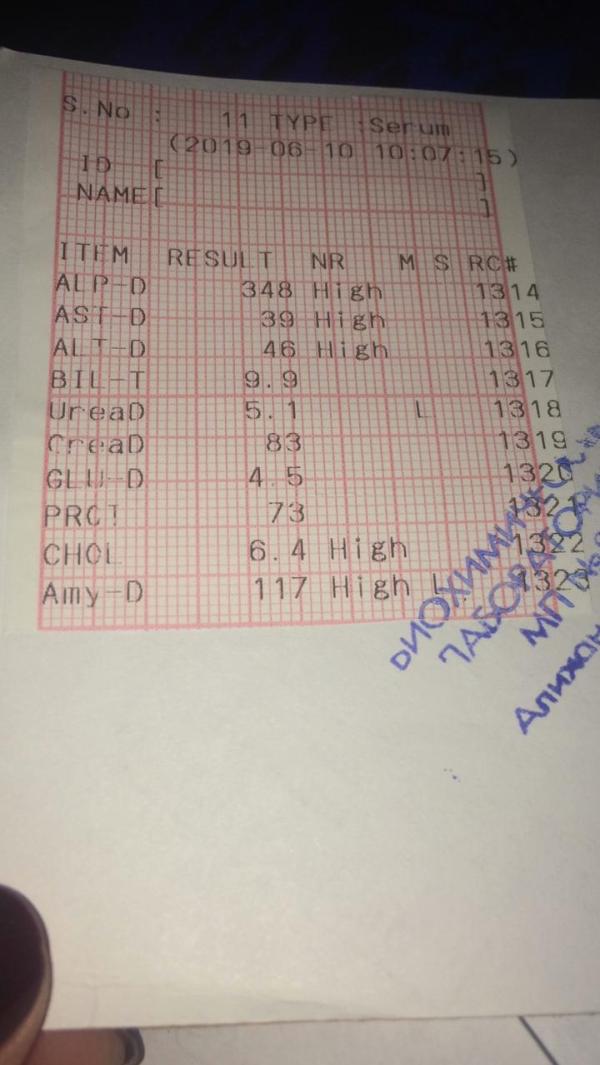 S.No : 11 TYPE :Serum
(2019-06-10 10:07:15)
ID [ ]
NAME[ ]
ITEM RESULT NR M S RC#
ALP-D 348 High 1314
AST-D 39 High 1315
ALT-D 46 High 1316
BIL-T 9.9 1317
UreaD 5.1 L 1318
CreaD 83 1319
GLU-D 4.5 1320
PROT 73 1321
CHOL 6.4 High 1322
Amy-D 117 High L 1323